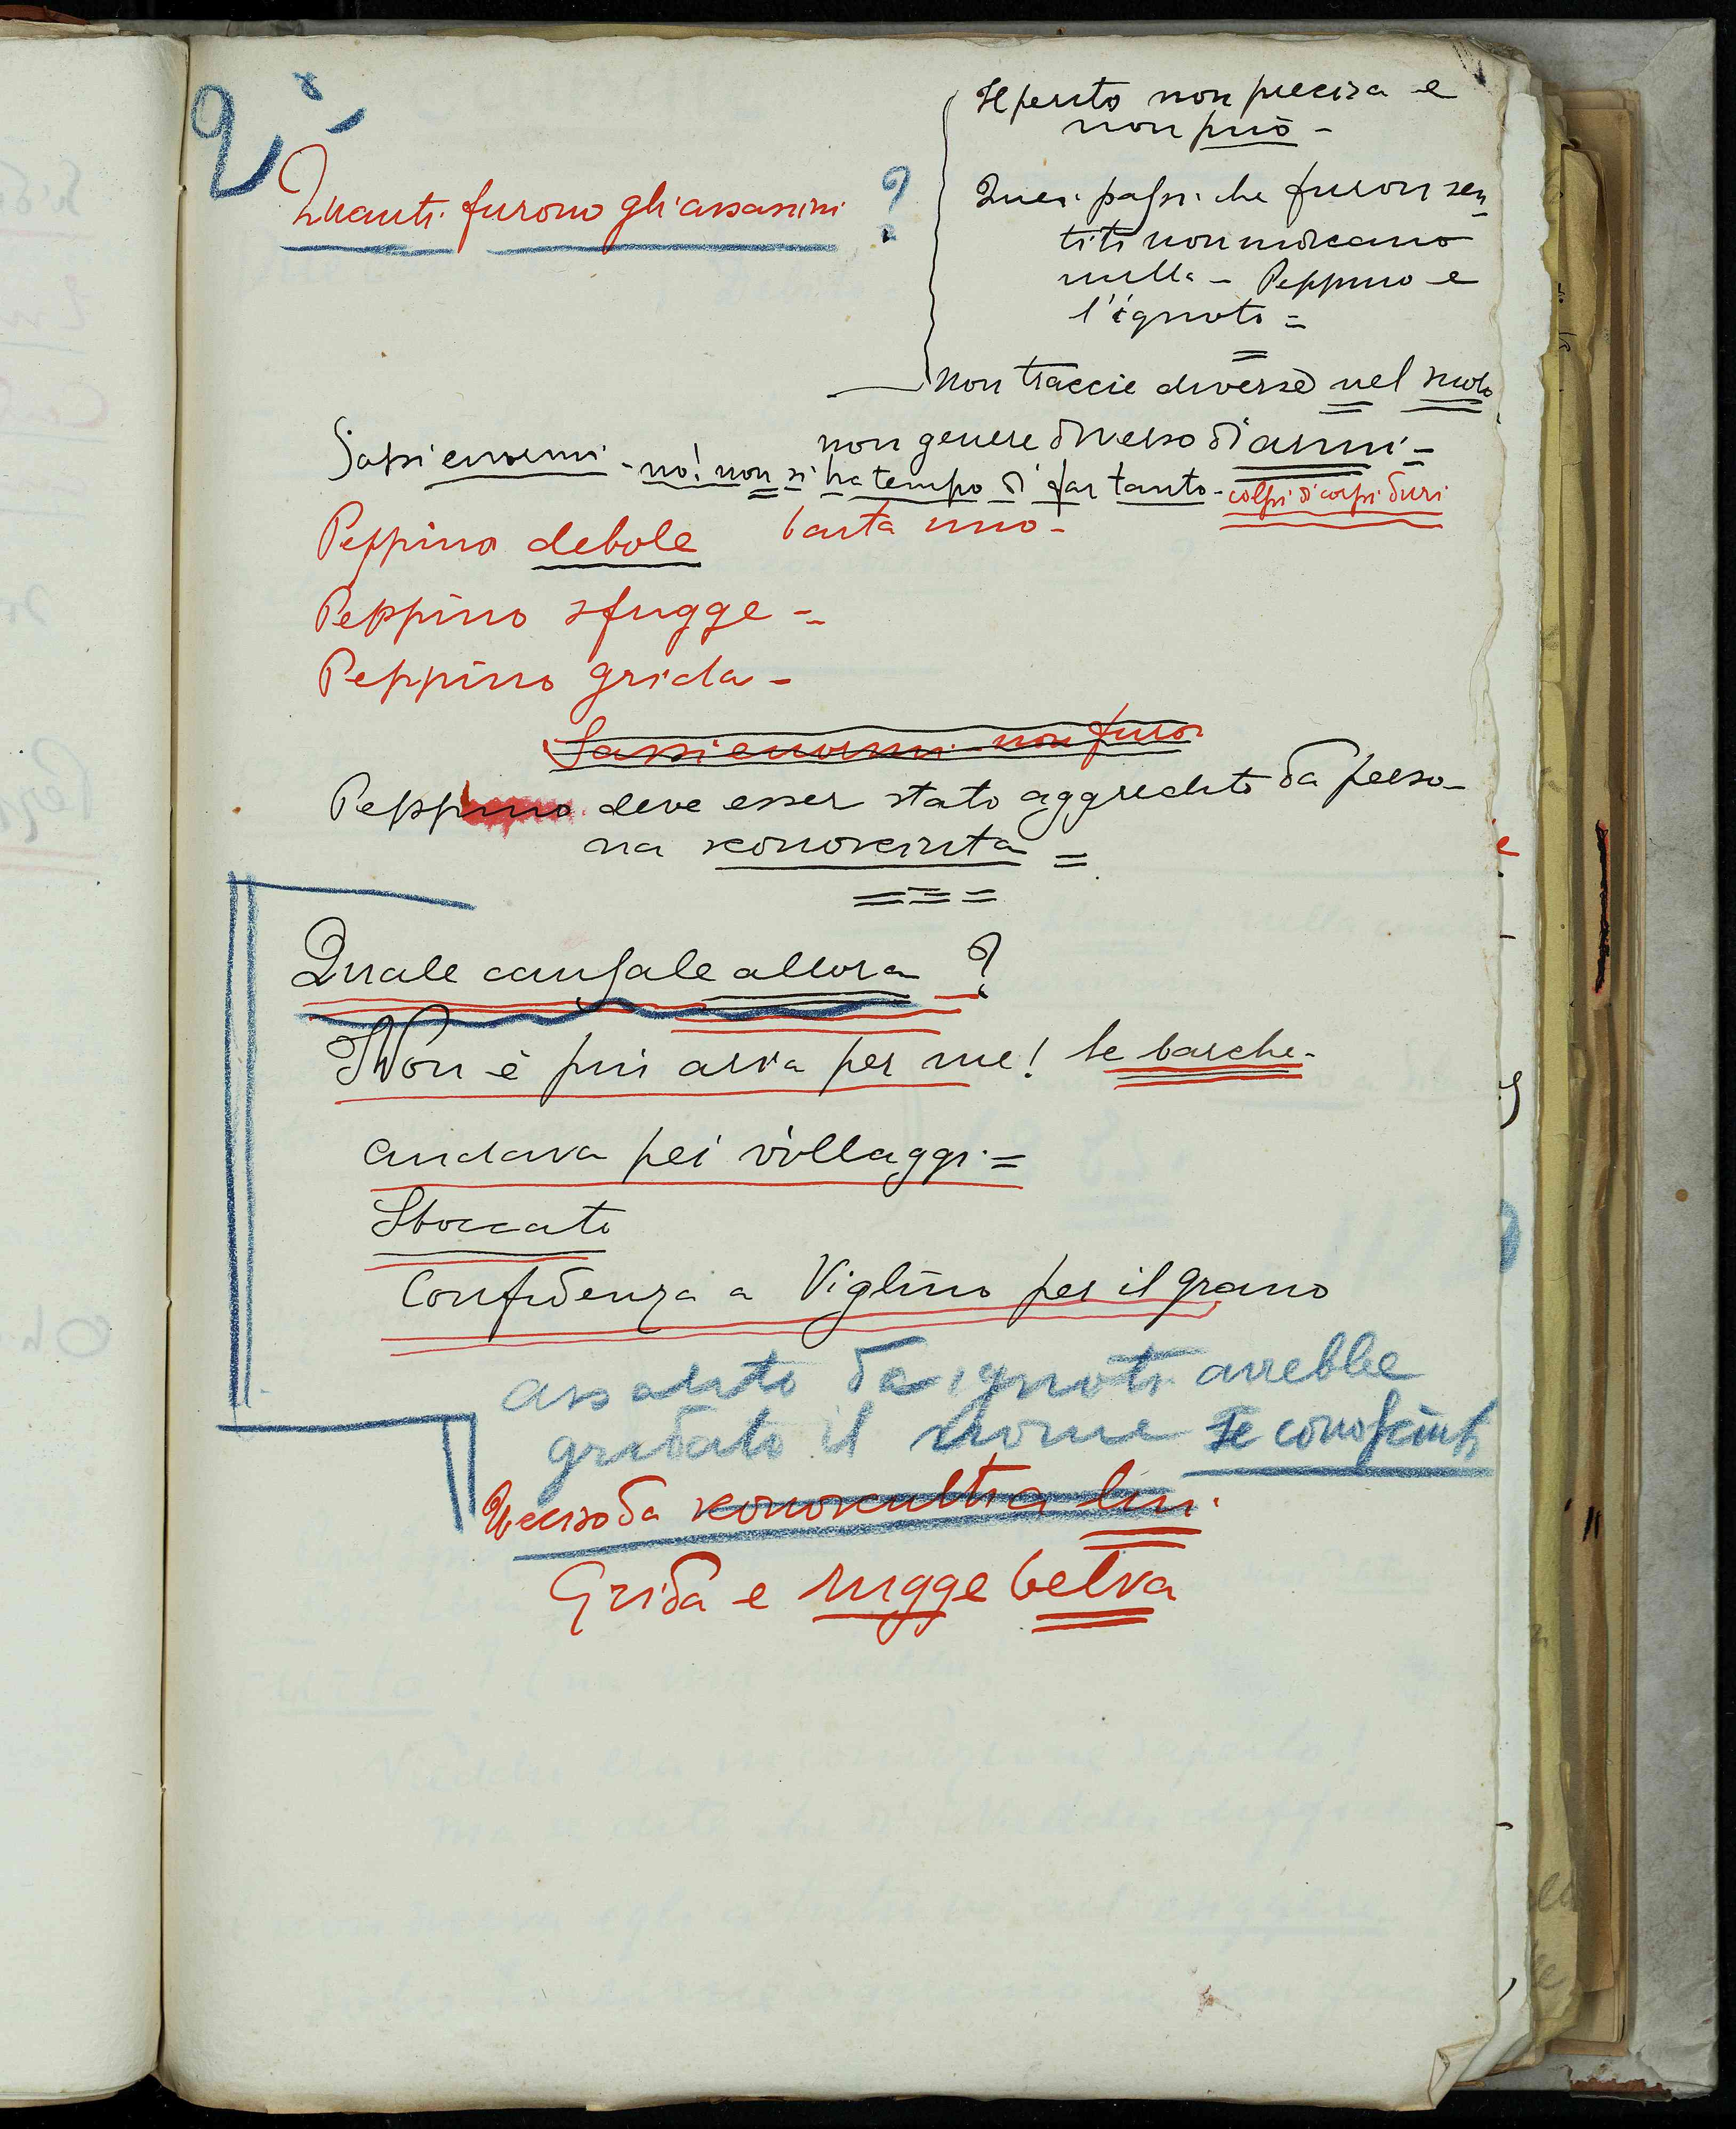 2°-
Quanti furono gli assassini ?
Il perito non precisa e
non può -
Quei passi che furon sen
titi non indicano
nulla - Peppino e
l'ignoto =
Non traccie diverse nel suolo
non genere diverso di armi -
Sassi enormi - no! non si ha tempo di far tanto - colpi di corpi duri
Peppino debole basta uno -
Peppino sfugge -
Peppino grida -
Sassi enormi non furo
Peppino deve esser stato aggredito da perso-
na sconosciuta =
Quale causale allora ?
Non è più aria per me! le barche -
andava pei villaggi =
Sboccato
Confidenza a Viglino per il grano
assalito da ignoti avrebbe
gridato il nome se conosciuti
Ucciso da sconosciuti a lui.
Grida e rugge belva